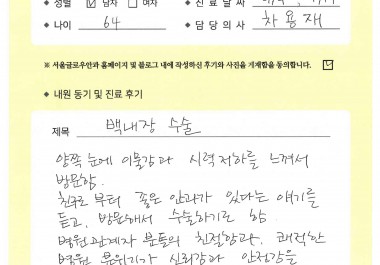 ◆ 성별 ☑ 남자 □ 여자 ◆ 진료날짜
◆ 나이 64 ◆ 담당의사 차용재
※ 서울글로우안과 홈페이지 및 블로그 내에 작성하신 후기와 사진을 기재함을 동의합니다. ☑
◆ 내원 동기 및 진료 후기
제목 백내장 수술
양쪽 눈에 이물감과 시력저하를 느껴서
방문함.
친구로부터 좋은 안과가 있다는 얘기를
듣고, 방문해서 수술하기로 함.
병원관계자 분들의 친절함과, 쾌적한
병원 분위기가 신뢰감과 안정감을